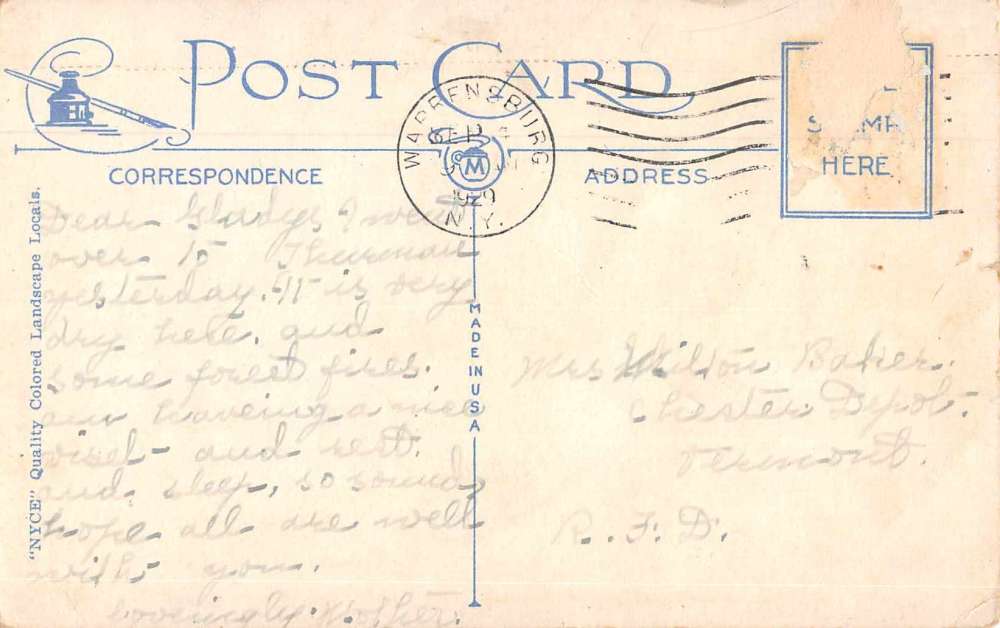 POST CARD
WARRENSBURG
SEP 4
1929
N.Y.
M
HERE
CORRESPONDENCE
ADDRESS
"NYCE" Quality Colored Landscape Locals.
MADE IN USA
Dear Gladys I went
over to Thurman
yesterday. It is very
dry here. and
some forest fires.
am haveing a nice
viset - and rest.
and sleep, so sound,
hope all are well
with you.
Loveingly Mother.
Mrs Milton Baker.
Chester Depot.
Vermont.
R. F. D.